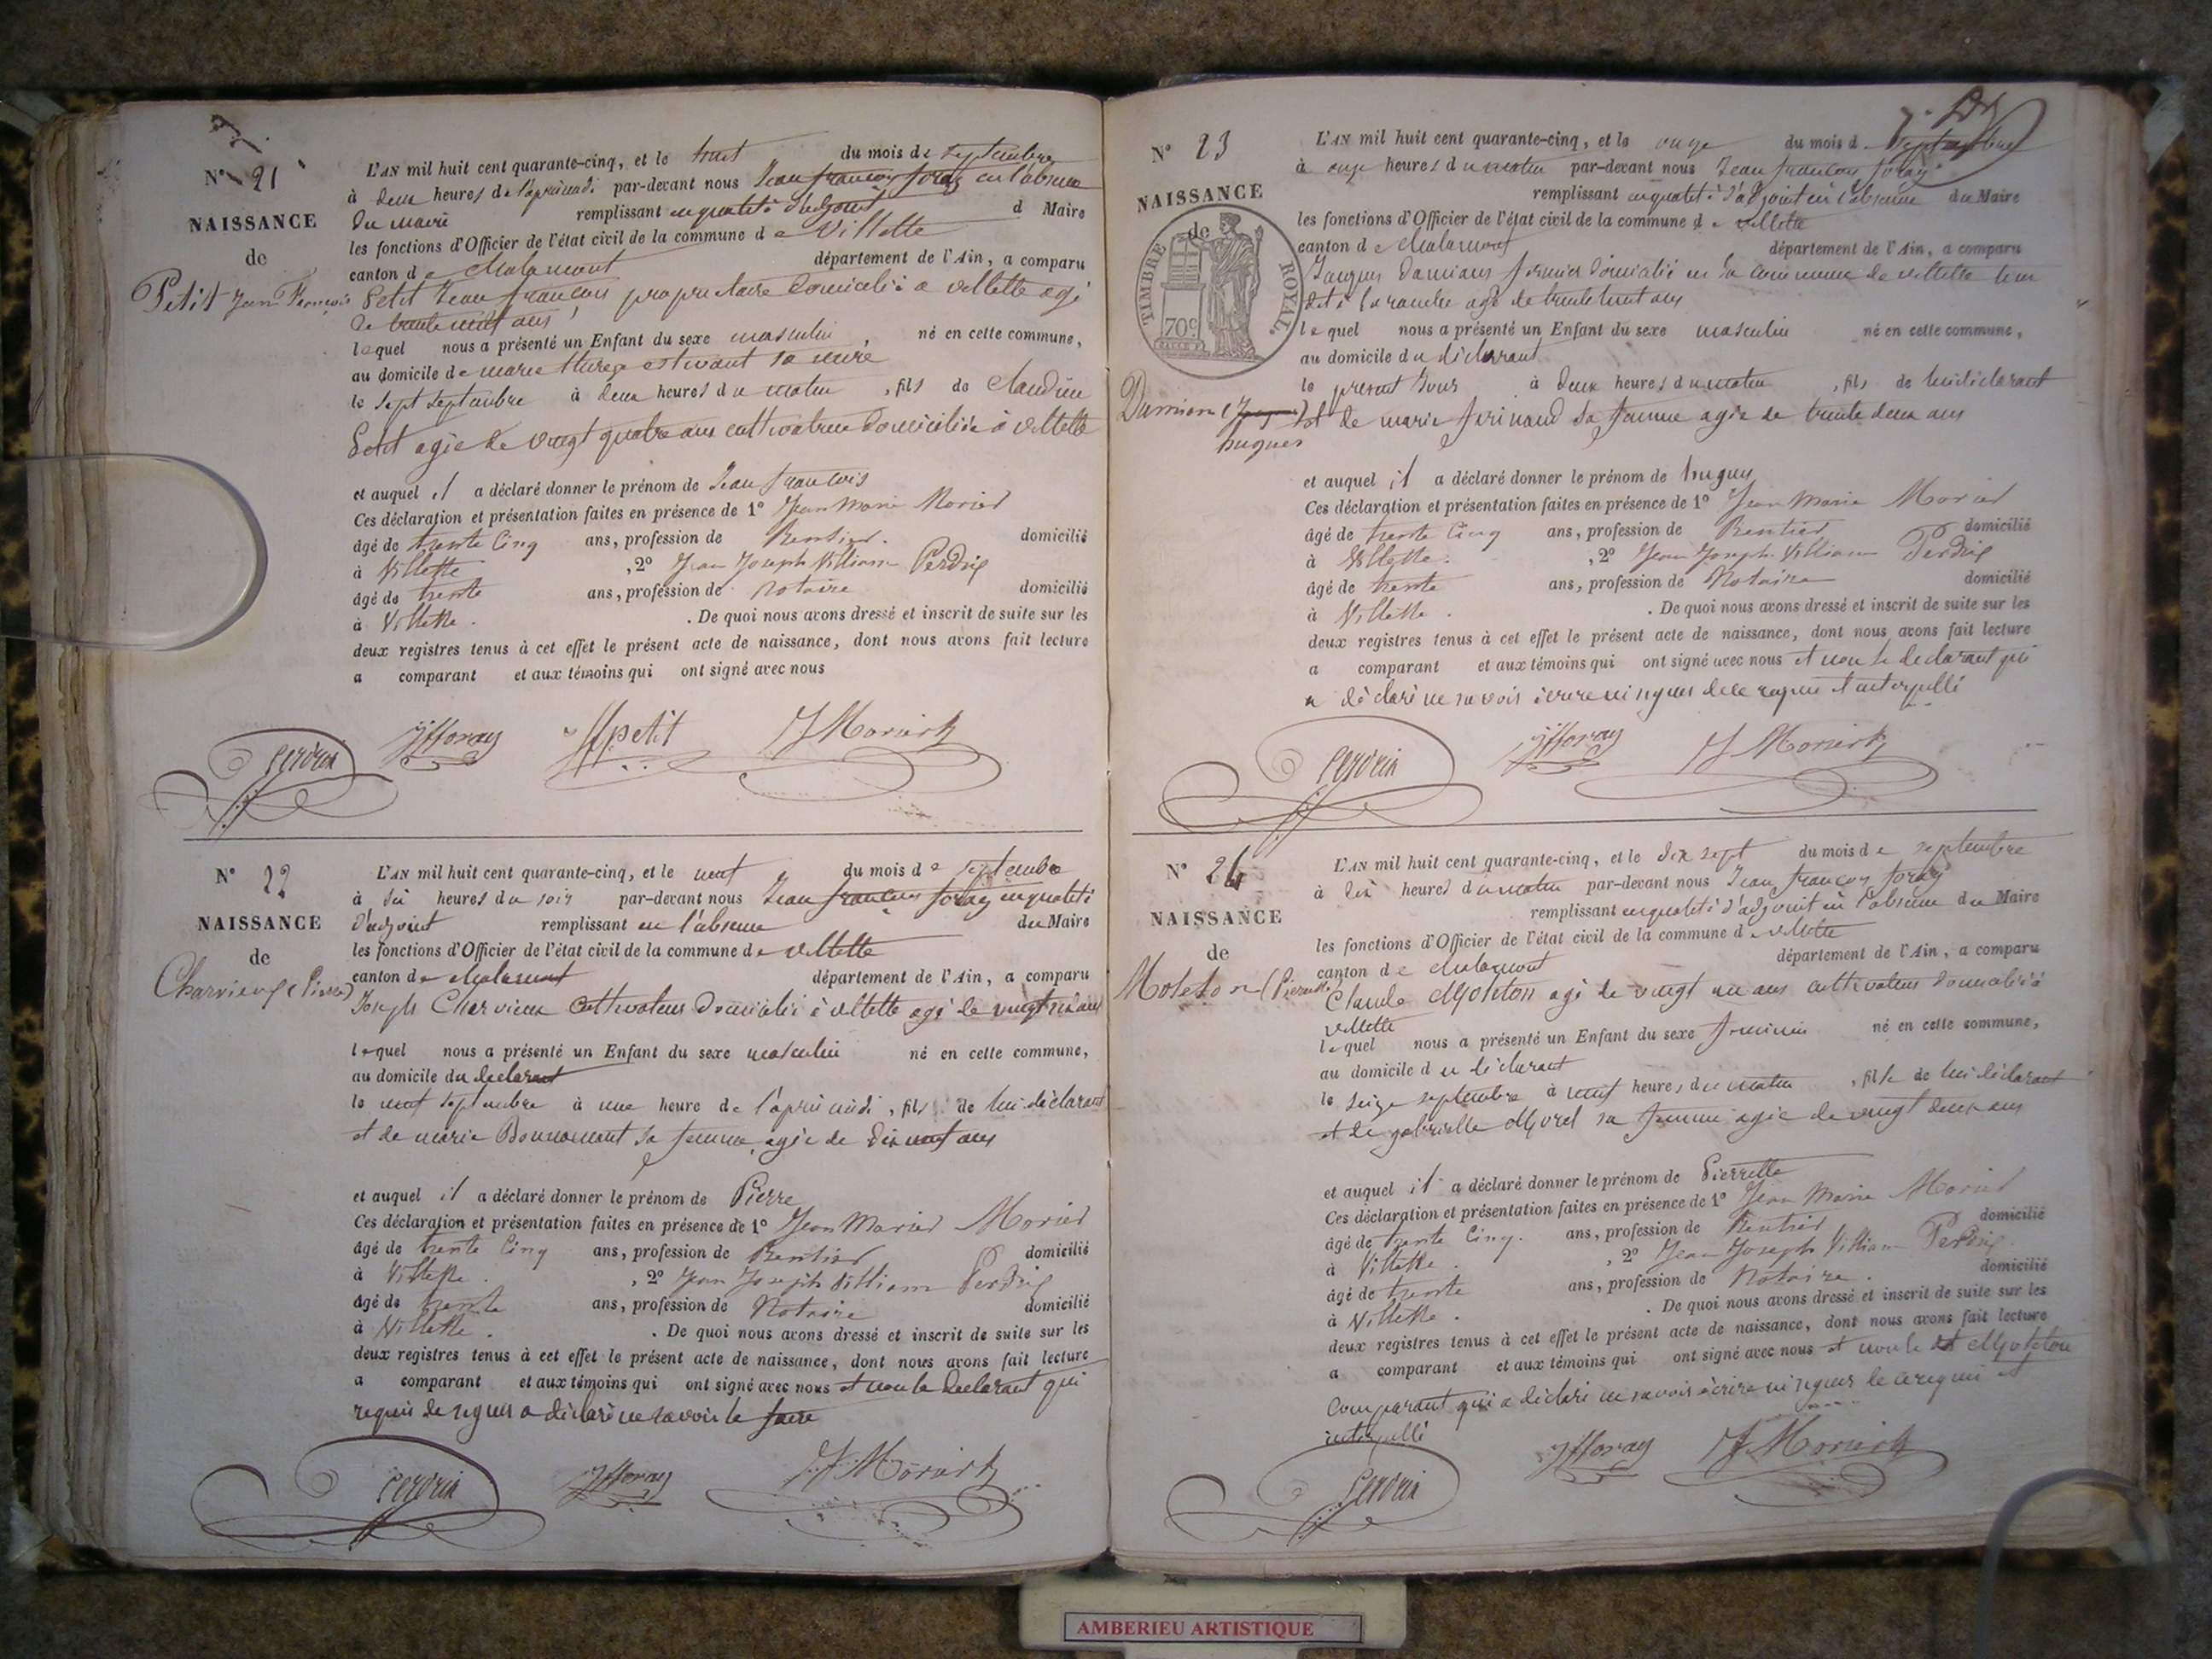 N° 21
NAISSANCE
de
Petit Jean François
L'AN mil huit cent quarante-cinq, et le huit du mois de septembre
à deux heures de l'aprèmidi par-devant nous Jean françois foray en l'absence
du maire remplissant en qualité d'adjoint d Maire
les fonctions d'Officier de l'état civil de la commune de Villette
canton de chalamont département de l'Ain, a comparu
Petit Jean françois propriétaire domicilié a villette agé
de trente huit ans
lequel nous a présenté un Enfant du sexe masculin, né en cette commune,
au domicile de marie therese estivant sa mère
le sept septembre à deux heures du matin, fils de claudine
Petit agée de vingt quatre ans cultivatrice domiciliée à villette
et auquel il a déclaré donner le prénom de Jean françois
Ces déclaration et présentation faites en présence de 1° Jean Marie Morier
âgé de trente cinq ans, profession de Rentier. domicilié
à Villette, 2° Jean Joseph Villiam Perdrix
âgé de trente ans, profession de notaire domicilié
à Villette. De quoi nous avons dressé et inscrit de suite sur les
deux registres tenus à cet effet le présent acte de naissance, dont nous avons fait lecture
a comparant et aux témoins qui ont signé avec nous
perdrix jfforay jfpetit J Morier
N° 22
NAISSANCE
de
Charvieux (Pierre)
L'AN mil huit cent quarante-cinq, et le neuf du mois de septembre
à six heures du soir par-devant nous Jean françois foray en qualité
d'adjoint remplissant en l'absence du Maire
les fonctions d'Officier de l'état civil de la commune de villette
canton de chalamont département de l'Ain, a comparu
Joseph Charvieux cultivateur domicilié à villette agé de vingt six ans
lequel nous a présenté un Enfant du sexe masculin né en cette commune,
au domicile du déclarant
le neuf septembre à une heure de l'après midi, fils de lui déclarant
et de marie Bonnamant sa femme, agée de dix neuf ans
et auquel il a déclaré donner le prénom de Pierre
Ces déclaration et présentation faites en présence de 1° Jean Marie Morier
âgé de trente cinq ans, profession de Rentier domicilié
à Villette. , 2° Jean Joseph Villiam Perdrix
âgé de trente ans, profession de Notaire domicilié
à Villette. De quoi nous avons dressé et inscrit de suite sur les
deux registres tenus à cet effet le présent acte de naissance, dont nous avons fait lecture
a comparant et aux témoins qui ont signé avec nous et non le declarant qui
requis de signer a déclaré ne savoir le faire
perdrix jfforay J Morier
N° 23
NAISSANCE
de
TIMBRE ROYAL.
70c
Damians
hugues
L'AN mil huit cent quarante-cinq, et le onze du mois de septembre
à onze heures du matin par-devant nous Jean françois foray
remplissant en qualité d'adjoint en l'absence du Maire
les fonctions d'Officier de l'état civil de la commune de villette
canton de chalamont département de l'Ain, a comparu
Jacques Damians fermier domicilié en la commune de villette lieu
dit agé de trente huit ans
lequel nous a présenté un Enfant du sexe masculin né en cette commune,
au domicile du déclarant
le présent Jour à deux heures du matin, fils de lui déclarant
et de marie ferinand sa femme agée de trente deux ans
et auquel il a déclaré donner le prénom de hugues
Ces déclaration et présentation faites en présence de 1° Jean Marie Morier
âgé de trente cinq ans, profession de Rentier domicilié
à Villette. , 2° Jean Joseph Villiam Perdrix
âgé de trente ans, profession de Notaire domicilié
à Villette. De quoi nous avons dressé et inscrit de suite sur les
deux registres tenus à cet effet le présent acte de naissance, dont nous avons fait lecture
a comparant et aux témoins qui ont signé avec nous et non le declarant qui
a déclaré ne savoir écrire ni signer de ce requis et interpellé
perdrix jfforay J Morier
N° 24
NAISSANCE
de
Moleton (Pierrette)
L'AN mil huit cent quarante-cinq, et le dix sept du mois de septembre
à dix heures du matin par-devant nous Jean françois foray
remplissant en qualité d'adjoint en l'absence du Maire
les fonctions d'Officier de l'état civil de la commune de villette
canton de chalamont département de l'Ain, a comparu
Claude Moleton agé de vingt un ans cultivateur domicilié à
villette
lequel nous a présenté un Enfant du sexe feminin né en cette commune,
au domicile du déclarant
le seize septembre à neuf heures du matin, fille de lui déclarant
et de gabrielle Morel sa femme agée de vingt deux ans
et auquel il a déclaré donner le prénom de Pierrette
Ces déclaration et présentation faites en présence de 1° Jean Marie Morier
âgé de trente cinq. ans, profession de Rentier domicilié
à Villette. , 2° Jean Joseph Villiam Perdrix
âgé de trente ans, profession de Notaire. domicilié
à Villette. De quoi nous avons dressé et inscrit de suite sur les
deux registres tenus à cet effet le présent acte de naissance, dont nous avons fait lecture
a comparant et aux témoins qui ont signé avec nous et non le dt Moleton
comparant qui a déclaré ne savoir écrire ni signer de ce requis et
interpellé
perdrix jfforay J Morier
AMBERIEU ARTISTIQUE